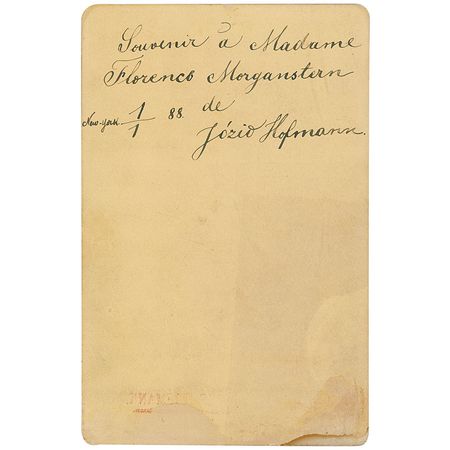 Souvenir à Madame
Florence Morganstern
New-York 1/1 88. de
Józio Hofmann.